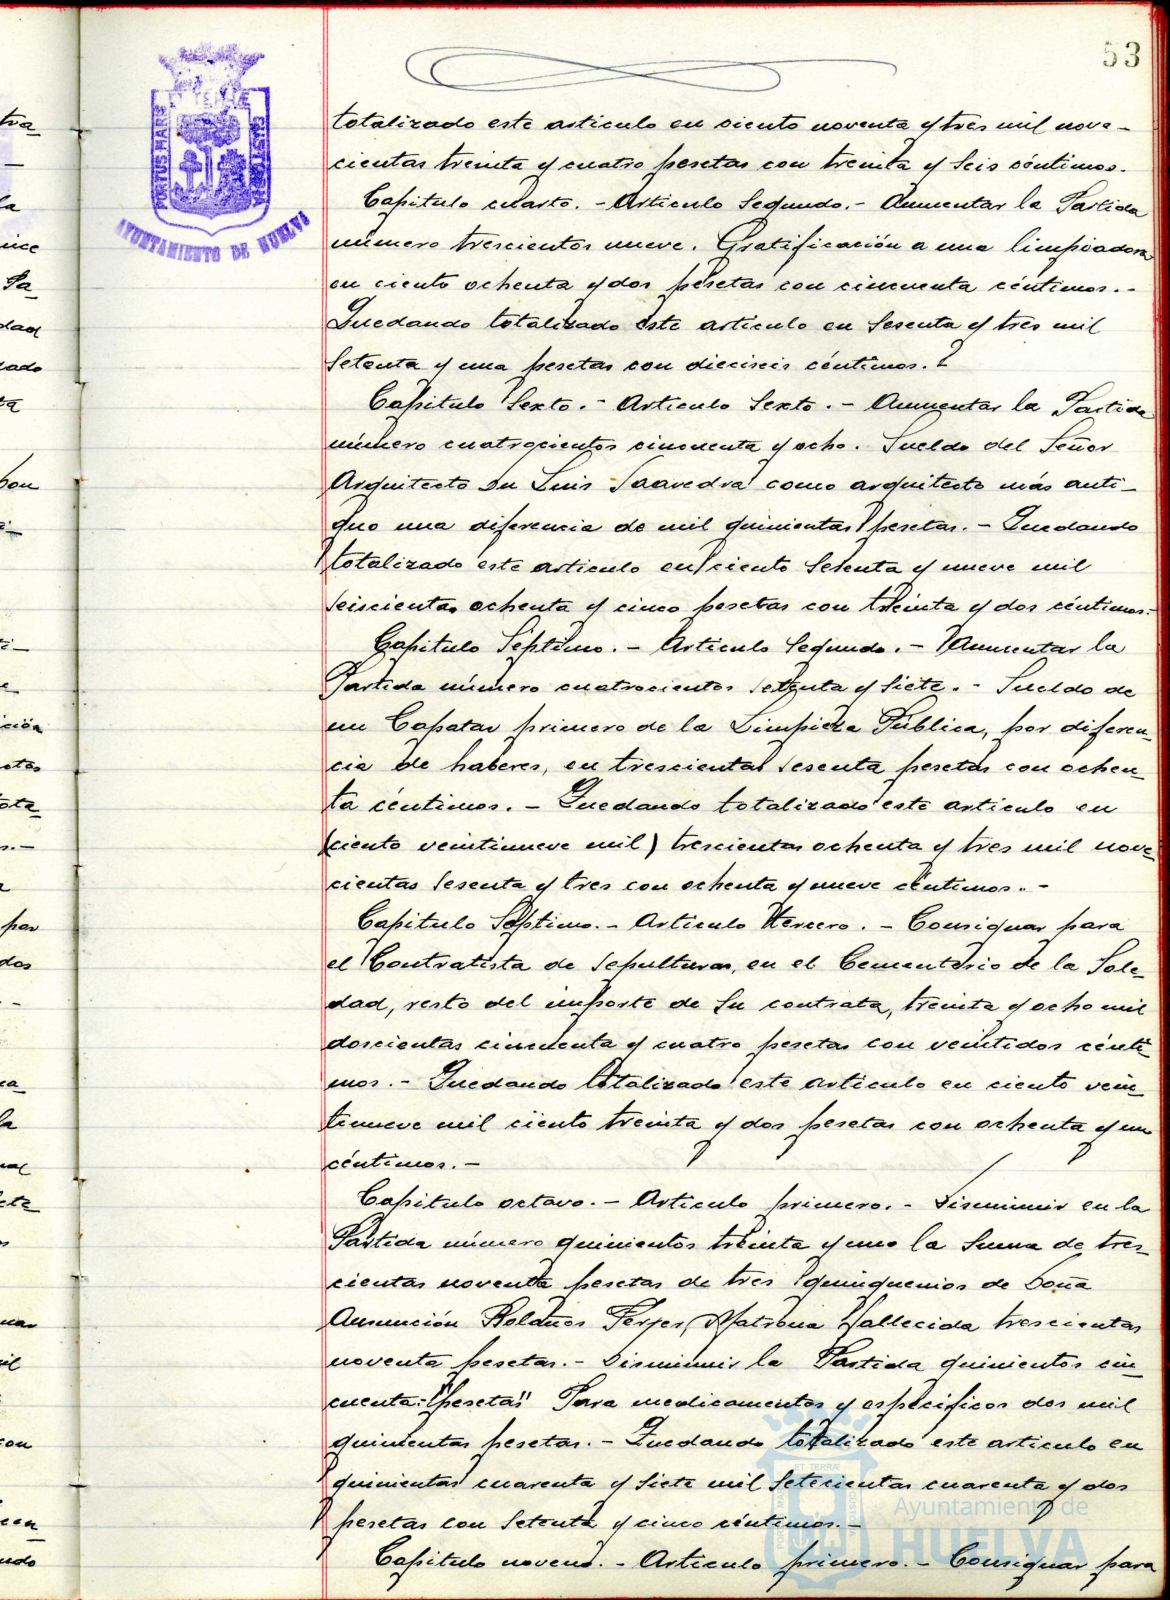 53
PORTUS MARIS ET TERRÆ CUSTODIA
AYUNTAMIENTO DE HUELVA
totalizado este articulo en ciento noventa y tres mil nove-
cientas treinta y cuatro pesetas con treinta y seis céntimos.
Capitulo cuarto. - Articulo Segundo. - Aumentar la Partida
número trescientos nueve. Gratificación a una limpiadora
en ciento ochenta y dos pesetas con cincuenta céntimos. -
Quedando totalizado este articulo en Sesenta y tres mil
Setenta y una pesetas con dieciseis céntimos.
Capitulo Sexto. - Articulo Sexto. - Aumentar la Partida
número cuatrocientos cincuenta y ocho. Sueldo del Señor
Arquitecto Dn Luis Saavedra como arquitecto más anti-
guo una diferencia de mil quinientas pesetas. - Quedando
totalizado este articulo en ciento Setenta y nueve mil
seiscientas ochenta y cinco pesetas con treinta y dos céntimos. -
Capitulo Séptimo. - Articulo Segundo. - Aumentar la
Partida número cuatrocientos setenta y Siete. - Sueldo de
un Capataz primero de la Limpieza Pública, por diferen-
cia de haberes, en trescientas sesenta pesetas con ochen-
ta céntimos. - Quedando totalizado este articulo en
(ciento veintinueve mil) trescientas ochenta y tres mil nove-
cientas Sesenta y tres con ochenta y nueve céntimos. -
Capitulo Séptimo. - Articulo tercero. - Consignar para
el Contratista de Sepulturas, en el Cementerio de la Sole-
dad, resto del importe de Su contrata, treinta y ocho mil
doscientas cincuenta y cuatro pesetas con veintidos cénti-
mos. - Quedando totalizado este articulo en ciento vein-
tinueve mil ciento treinta y dos pesetas con ochenta y un
céntimos. -
Capitulo octavo. - Articulo primero. - Disminuir en la
Partida número quinientos treinta y uno la Suma de tres-
cientas noventa pesetas de tres quinquenios de Doña
Asunción Bolaños Matrona fallecida trescientas
noventa pesetas. - Disminuir la Partida quinientos cin-
cuenta: "peseta" Para medicamentos y especificos dos mil
quinientas pesetas. - Quedando totalizado este articulo en
quinientas cuarenta y Siete mil Setecientas cuarenta y dos
pesetas con Setenta y cinco céntimos. -
Capitulo noveno. - Articulo primero. - Consignar para
Ayuntamiento de
HUELVA